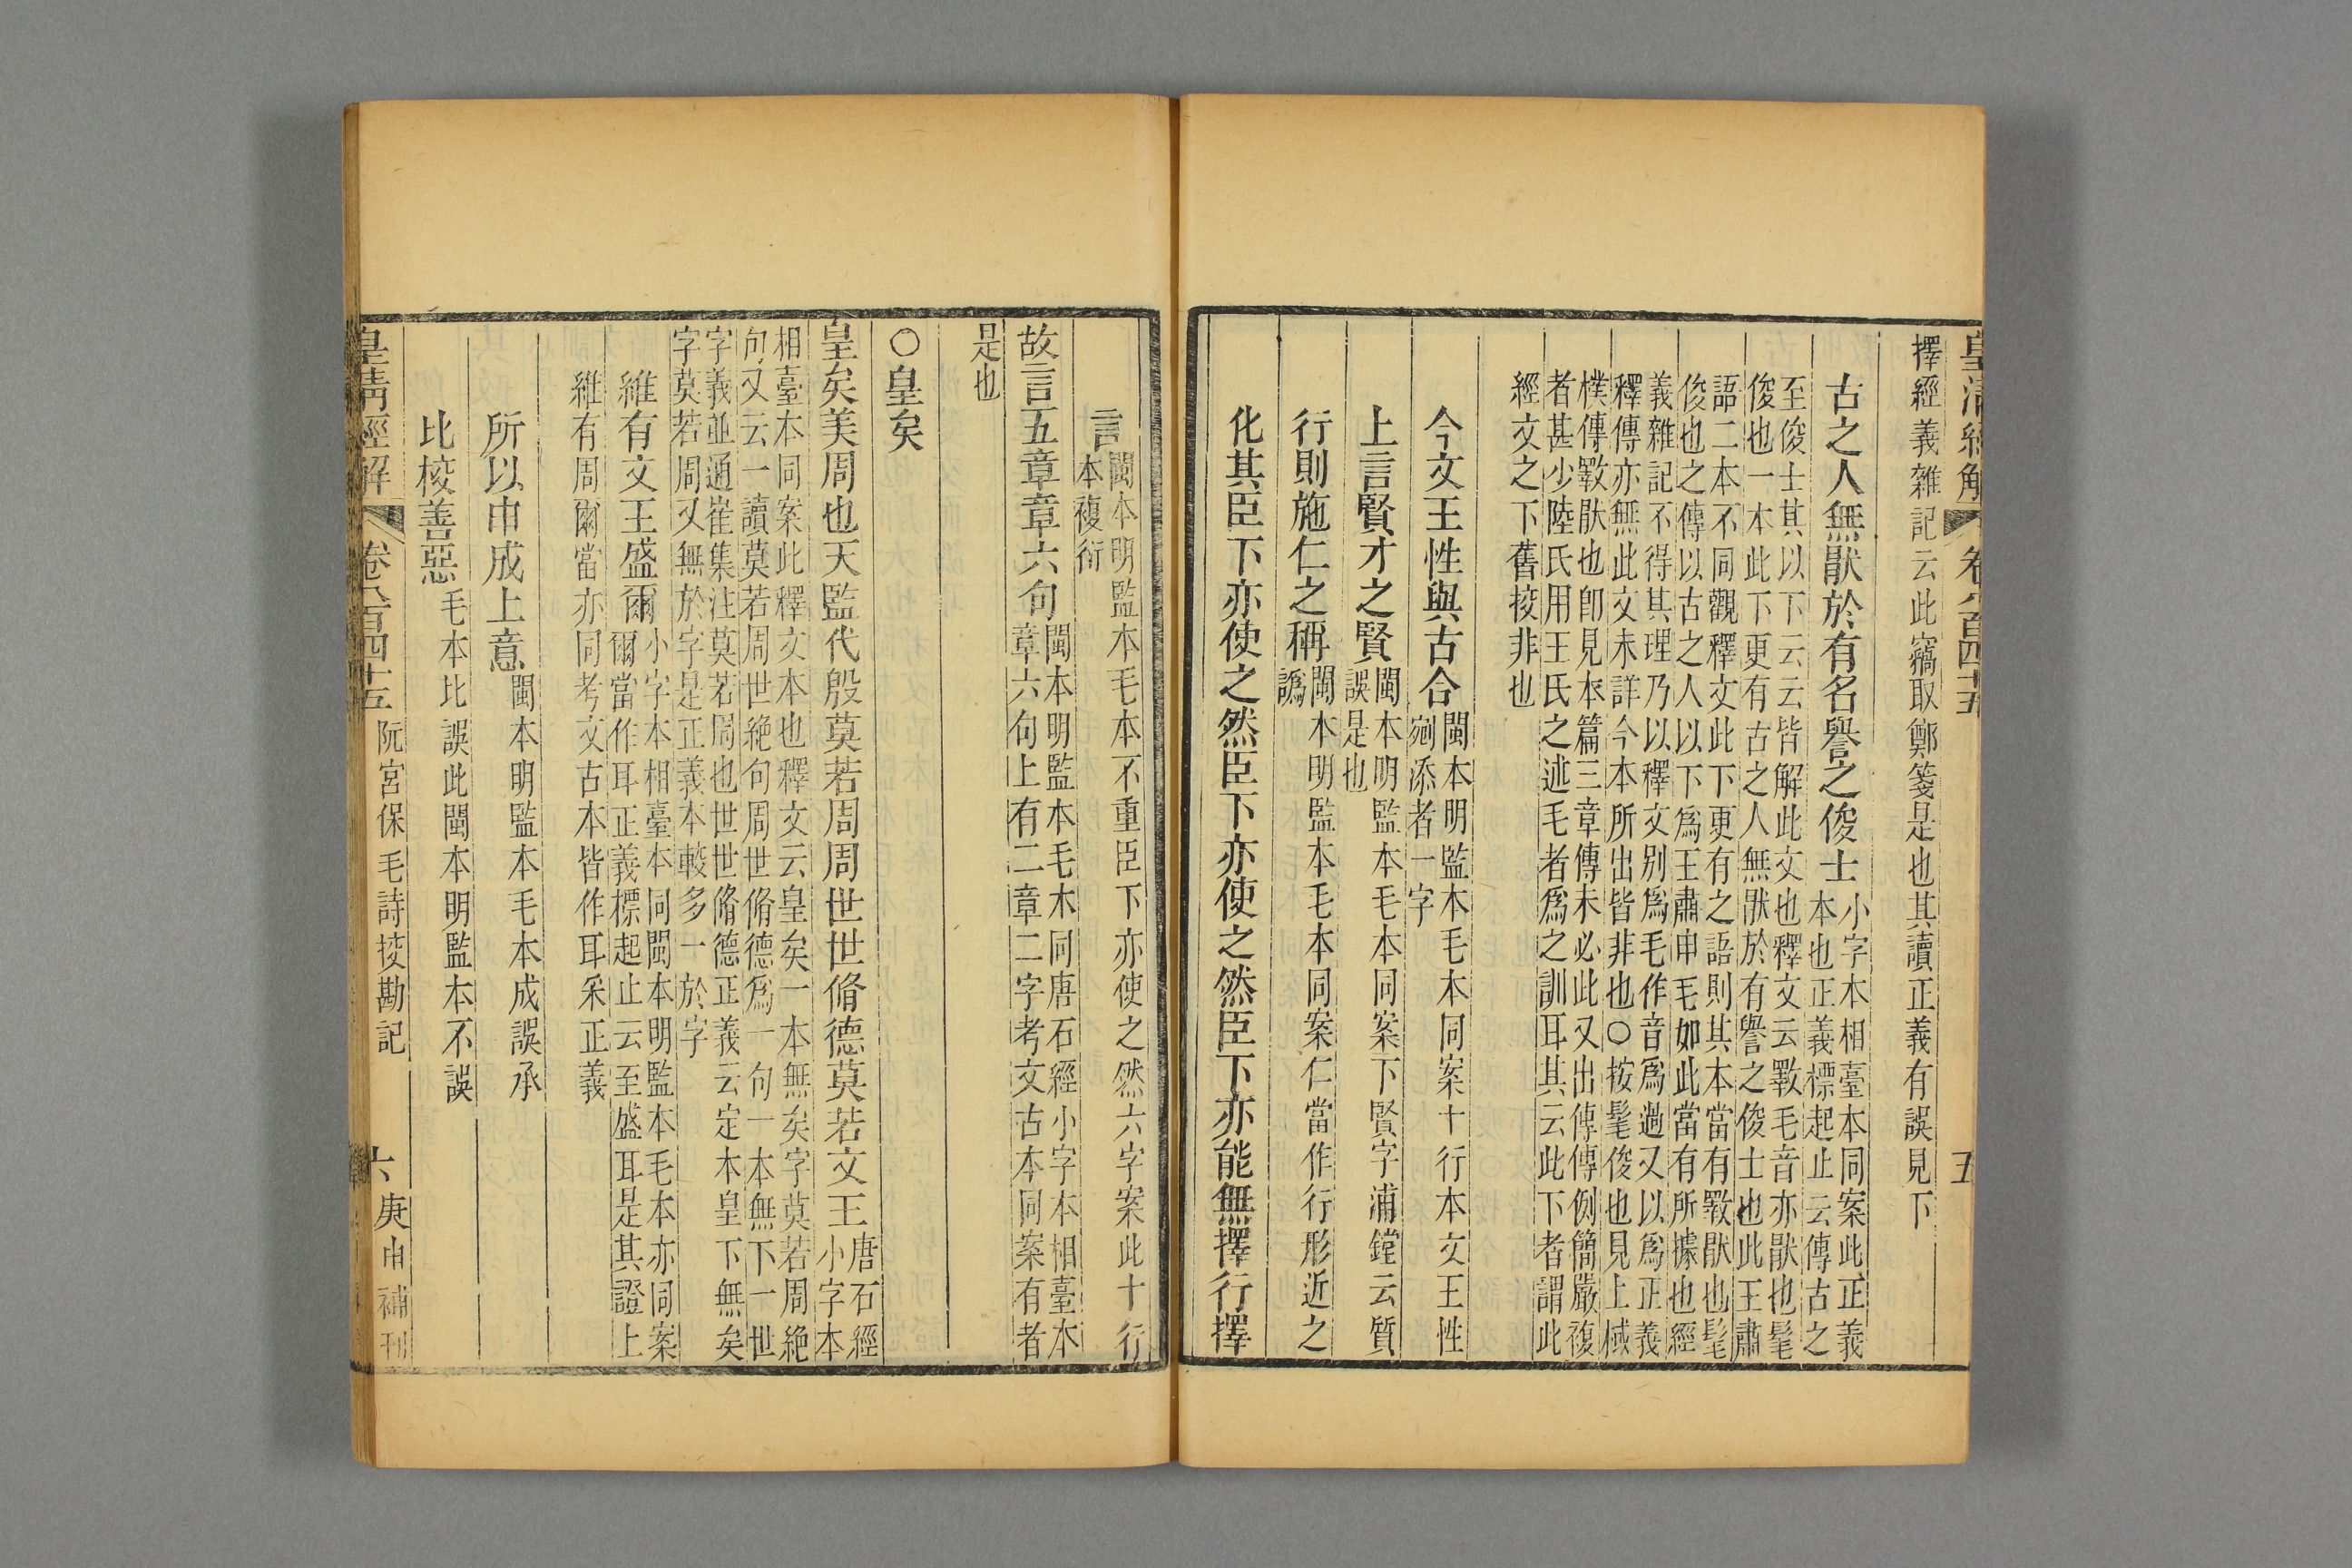 皇清經解
卷八百四十五
五
擇經義雜記云此竊取鄭箋是也其讀正義有誤見下
古之人無猒於有名譽之俊士
小字本相臺本同案此正義
本也正義標起止云傳古之
至俊士其以下云云皆解此文也釋文云斁毛音亦猒也髦
俊也一本此下更有古之人無猒於有譽之俊士也此王肅
語二本不同觀釋文此下更有之語則其本當有斁猒也髦
俊也之傳以古之人以下爲王肅申毛如此當有所據也經
義雜記不得其理乃以釋文别爲毛作音爲過又以爲正義
釋傳亦無此文未詳今本所出皆非也○按髦俊也見上棫
樸傳斁猒也卽見本篇三章傳未必此又出傳傳例簡嚴複
者甚少陸氏用王氏之述毛者爲之訓耳其云此下者謂此
經文之下舊挍非也
今文王性與古合
閩本明監本毛本同案十行本文王性
剜添者一字
上言賢才之賢
閩本明監本毛本同案下賢字浦鏜云質
誤是也
行則施仁之稱
閩本明監本毛本同案仁當作行形近之
譌
化其臣下亦使之然臣下亦使之然臣下亦能無擇行擇
言
閩本明監本毛本不重臣下亦使之然六字案此十行
本複衍
故言五章章六句
閩本明監本毛本同唐石經小字本相臺本
章六句上有二章二字考文古本同案有者
是也
○皇矣
皇矣美周也天監代殷莫若周周世世脩德莫若文王
唐石經
小字本
相臺本同案此釋文本也釋文云皇矣一本無矣字莫若周絶
句又云一讀莫若周世絶句周世脩德爲一句一本無下一世
字義並通崔集注莫若周也世世脩德正義云定本皇下無矣
字莫若周又無於字是正義本較多一於字
維有文王盛爾
小字本相臺本同閩本明監本毛本亦同案
爾當作耳正義標起止云至盛耳是其證上
維有周爾當亦同考文古本皆作耳采正義
所以申成上意
閩本明監本毛本成誤承
比校善惡
毛本比誤此閩本明監本不誤
皇清經解
卷八百四十五
阮宮保毛詩挍勘記
六
庚申補刊